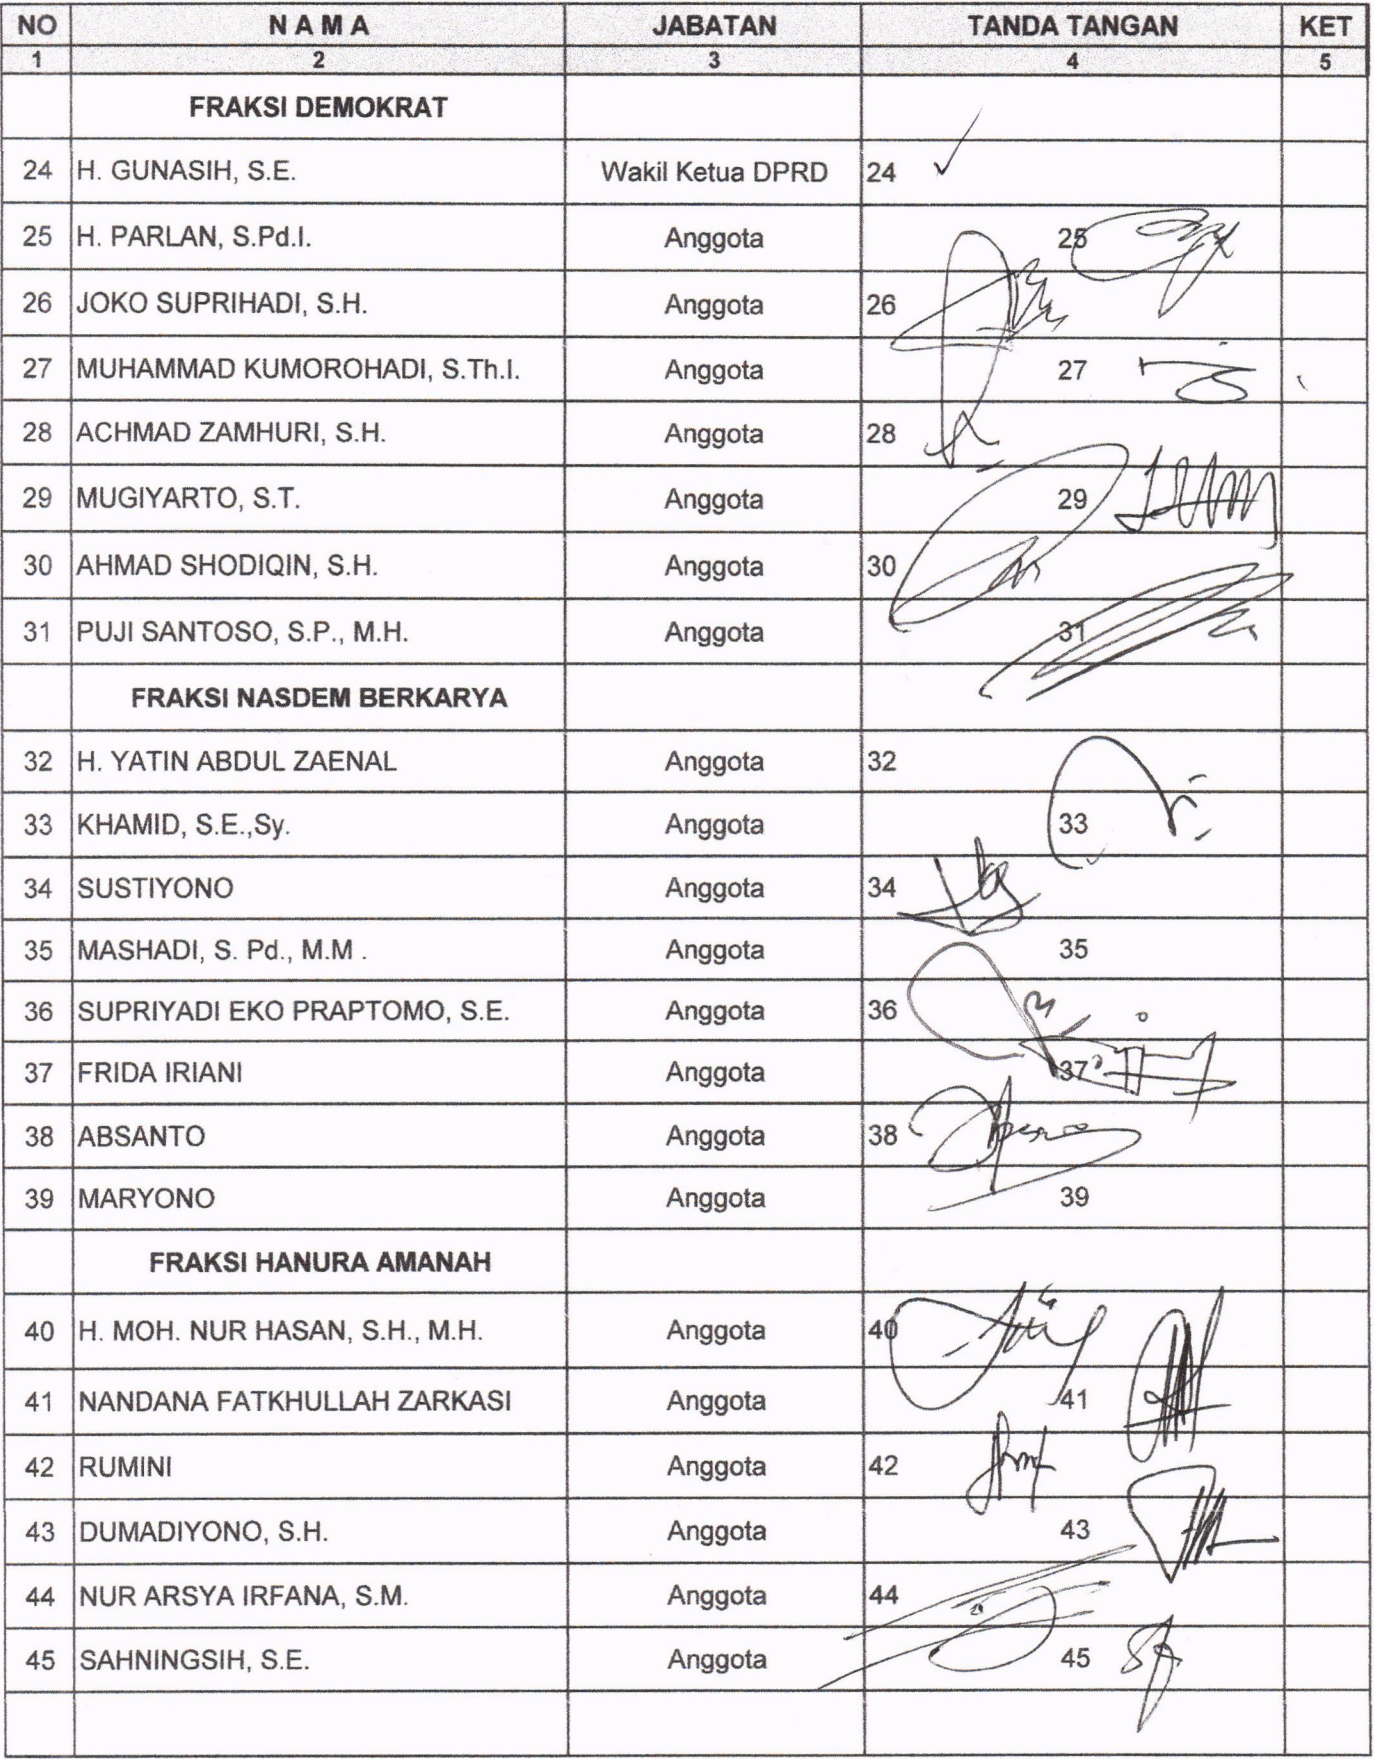 NO N A M A JABATAN TANDA TANGAN KET
1 2 3 4 5
FRAKSI DEMOKRAT
24 H. GUNASIH, S.E. Wakil Ketua DPRD 24
25 H. PARLAN, S.Pd.I. Anggota 25
26 JOKO SUPRIHADI, S.H. Anggota 26
27 MUHAMMAD KUMOROHADI, S.Th.I. Anggota 27
28 ACHMAD ZAMHURI, S.H. Anggota 28
29 MUGIYARTO, S.T. Anggota 29
30 AHMAD SHODIQIN, S.H. Anggota 30
31 PUJI SANTOSO, S.P., M.H. Anggota 31
FRAKSI NASDEM BERKARYA
32 H. YATIN ABDUL ZAENAL Anggota 32
33 KHAMID, S.E.,Sy. Anggota 33
34 SUSTIYONO Anggota 34
35 MASHADI, S. Pd., M.M . Anggota 35
36 SUPRIYADI EKO PRAPTOMO, S.E. Anggota 36
37 FRIDA IRIANI Anggota 37
38 ABSANTO Anggota 38
39 MARYONO Anggota 39
FRAKSI HANURA AMANAH
40 H. MOH. NUR HASAN, S.H., M.H. Anggota 40
41 NANDANA FATKHULLAH ZARKASI Anggota 41
42 RUMINI Anggota 42
43 DUMADIYONO, S.H. Anggota 43
44 NUR ARSYA IRFANA, S.M. Anggota 44
45 SAHNINGSIH, S.E. Anggota 45